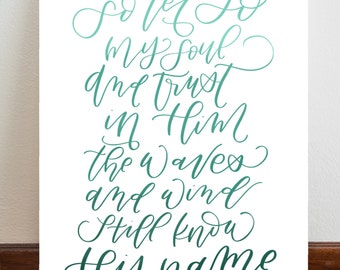 so let go
my soul
and trust
in Him
the waves
and wind
still know
His name